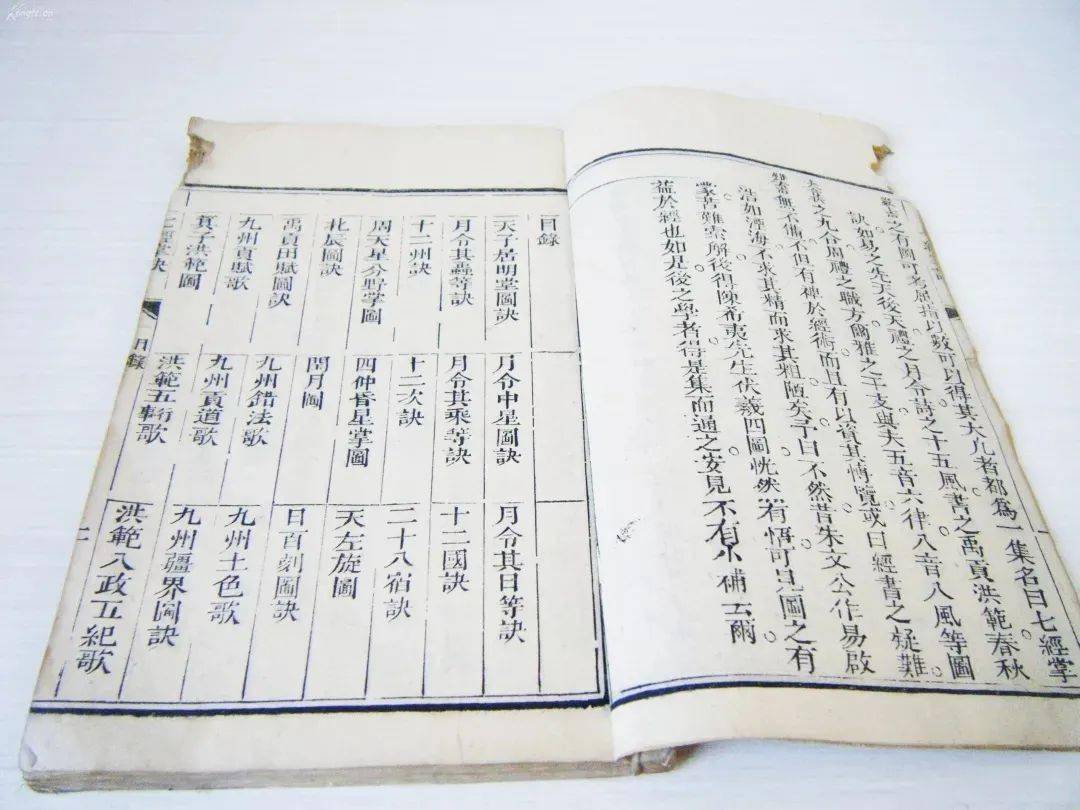 之有圖可考屈指以數可以得其大凡者都為一集名曰七經掌
訣如易之先天後天禮之月令詩之十五風書之禹貢洪範春秋
之九合周禮之職方爾雅之干支與夫五音六律八音八風等圖
無不備不但有裨於經術而且有以省其博覽或曰經書之疑難
浩如湮海不求其精而求其粗陋矣予曰不然昔朱文公作易啟
蒙苦難索解後得陳希夷先生伏羲四圖恍然有悟可見圖之有
益於經也如是後之學者得是集而通之安見不有小補云爾
目錄
天子居明堂圖訣 月令中星圖訣 月令其日等訣
月令其蟲等訣 月令其乘等訣 十二國訣
十二州訣 十二次訣 二十八宿訣
周天星分野掌圖 四仲昏星掌圖 天左旋圖
北辰圖訣 閏月圖 日百刻圖訣
禹貢田賦圖訣 九州錯法歌 九州土色歌
九州貢賦歌 九州貢道歌 九州疆界圖訣
箕子洪範圖 洪範五行歌 洪範八政五紀歌
七經掌訣 目錄 一